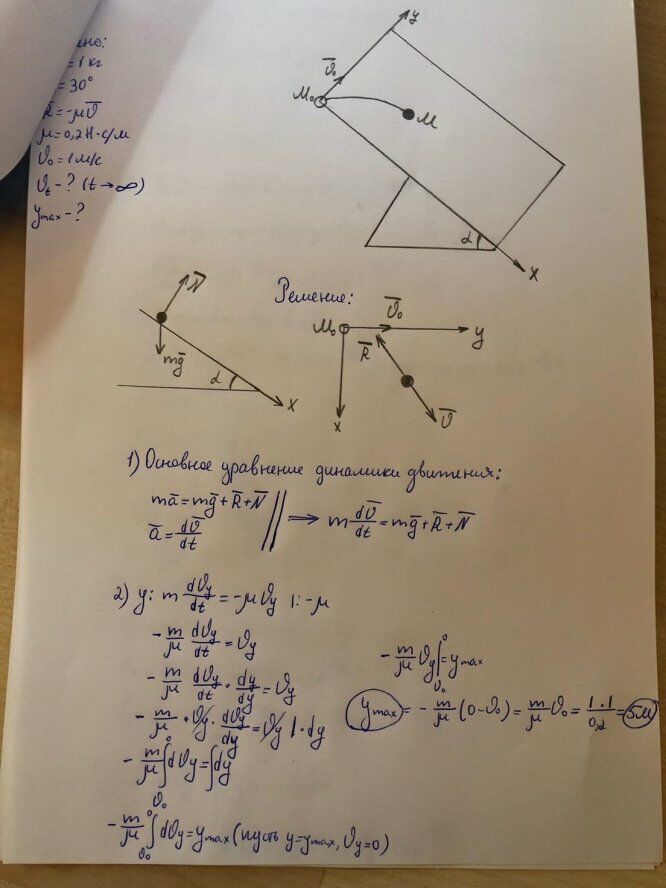 но:
= 1 кг
= 30°
R̄ = -μῡ
μ = 0,2 Н·с/м
ϑ₀ = 1 м/с
ϑt - ? (t → ∞)
ymax - ?
y
ϑ̄₀
M₀
M
α
x
Решение:
N̄
mḡ
α
x
M₀
ϑ̄₀
y
R̄
x
ϑ̄
1) Основное уравнение динамики движения:
mā = mḡ + R̄ + N̄
ā = dϑ̄/dt
⟹ m dϑ̄/dt = mḡ + R̄ + N̄
2) y: m dϑy/dt = -μϑy |: -μ
-m/μ dϑy/dt = ϑy
-m/μ dϑy/dt · dy/dy = ϑy
-m/μ · ϑy · dϑy/dy = ϑy | · dy
-m/μ ∫ϑ₀⁰ dϑy = ∫dy
-m/μ ∫ϑ₀⁰ dϑy = ymax (пусть y = ymax, ϑy = 0)
-m/μ ϑy |ϑ₀⁰ = ymax
ymax = -m/μ (0 - ϑ₀) = m/μ ϑ₀ = 1·1/0,2 = 5м